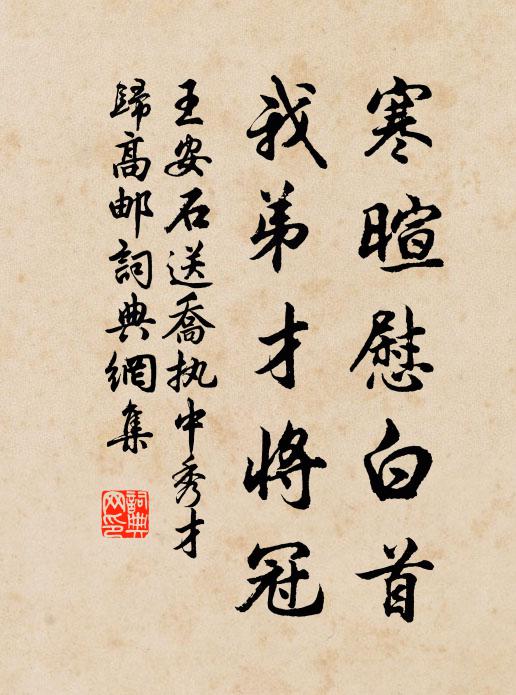 寒暄慰白首
我弟才將冠
王安石送喬执中秀才
歸高邮詞典網集
詞典网印